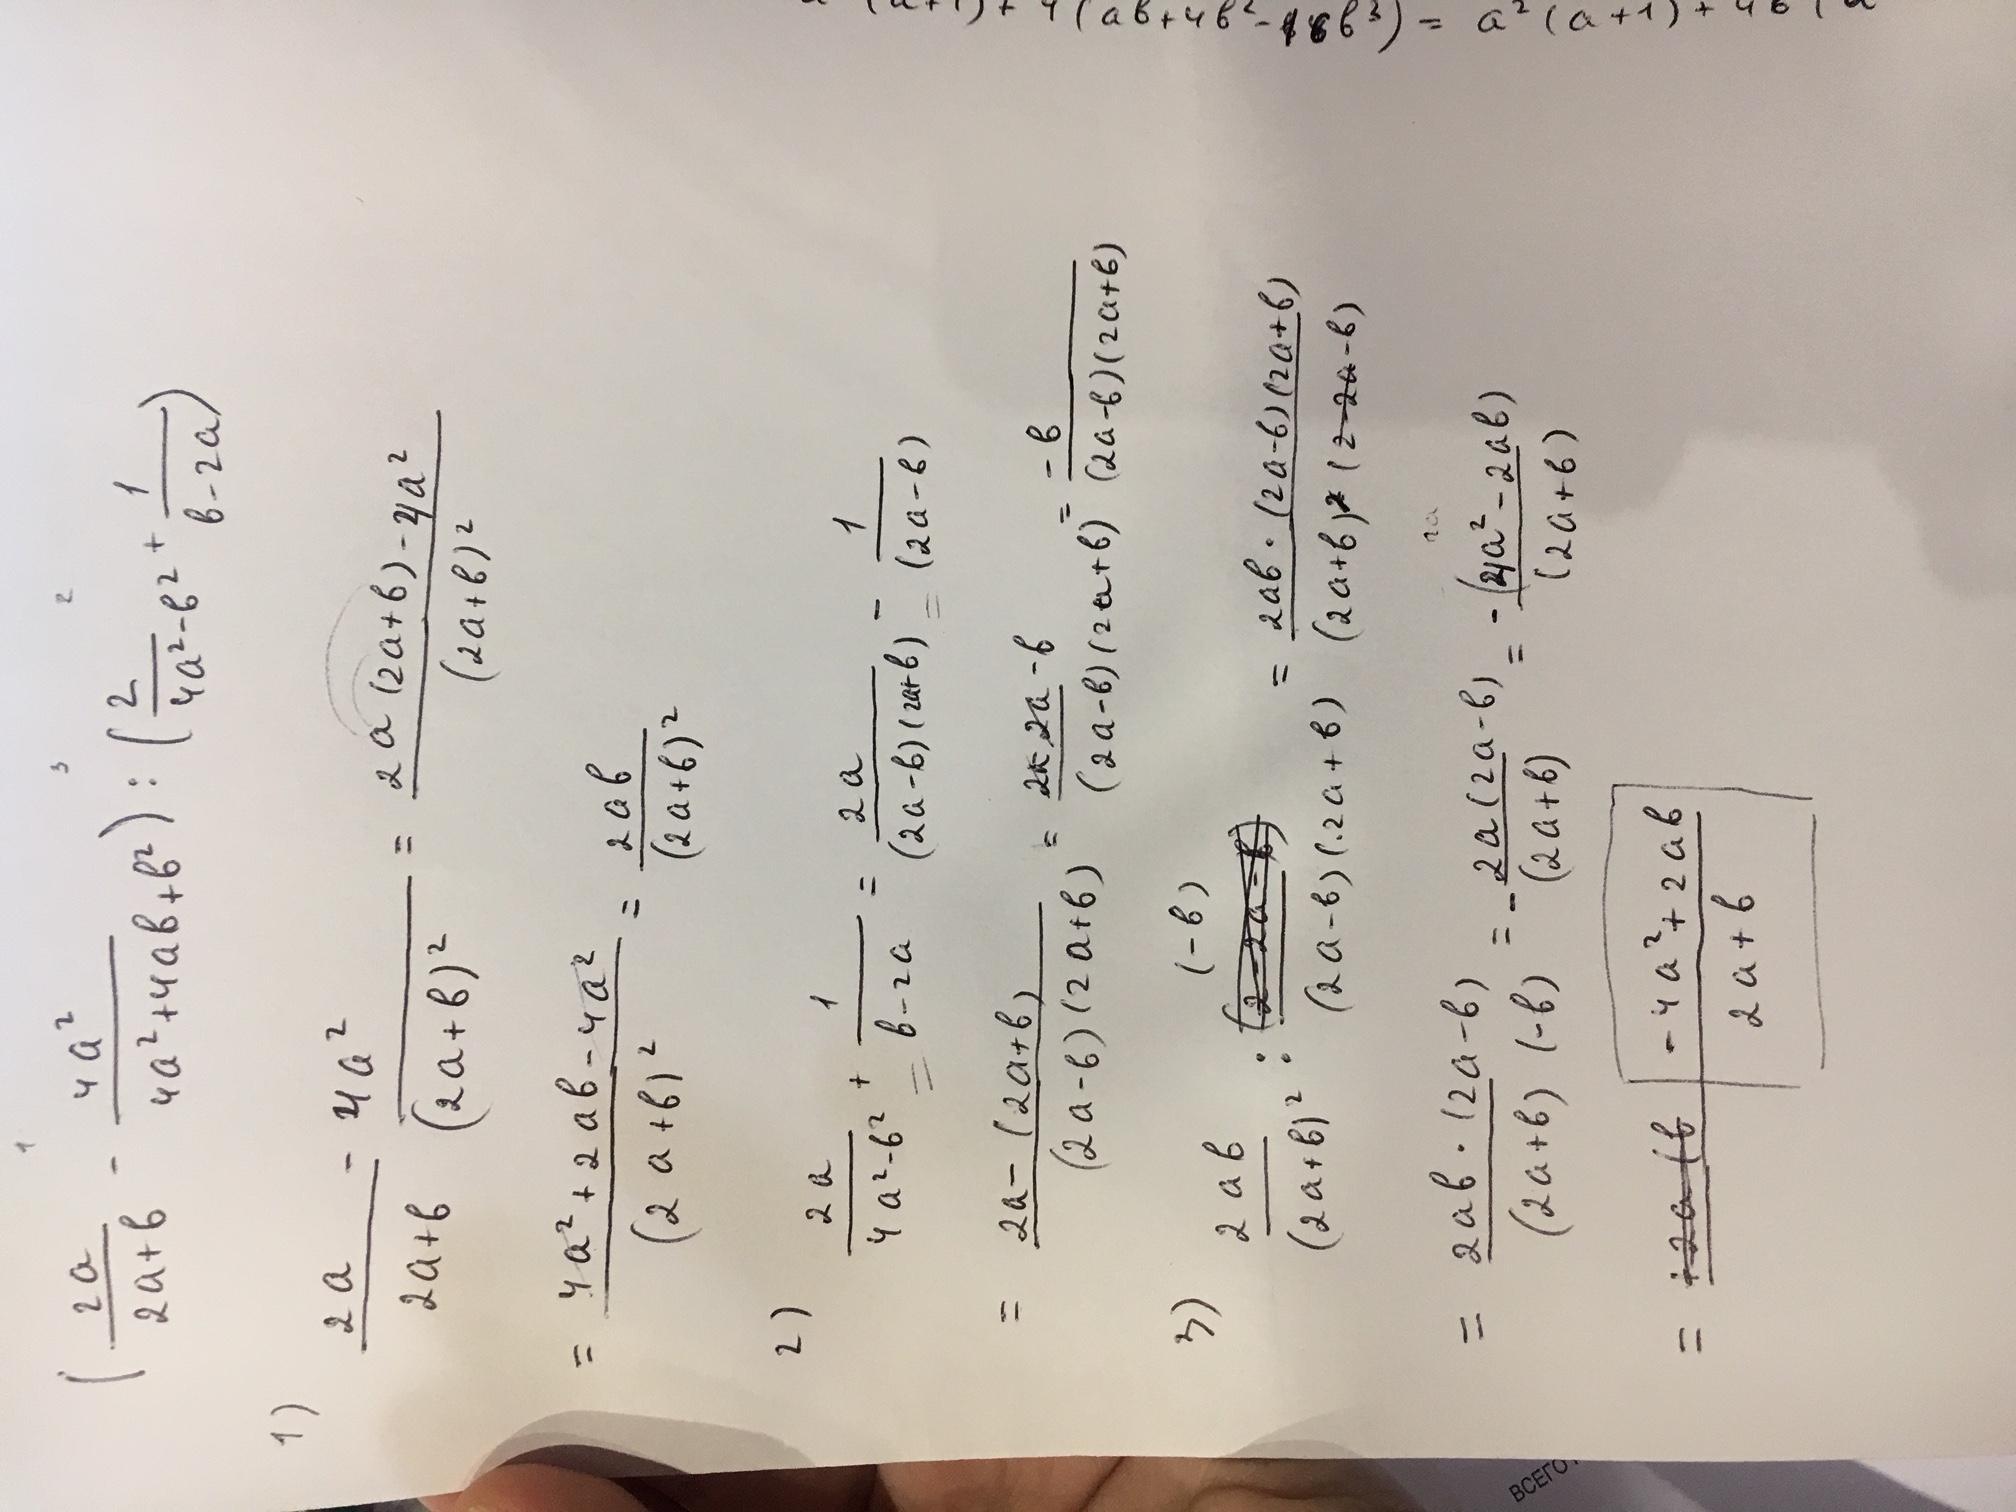 a²(a+1)+4(ab+4b²-16b³) = a²(a+1)+4b(a
1 3 2
(2a/(2a+b) - 4a²/(4a²+4ab+b²)) : (2/(4a²-b²) + 1/(b-2a))
1) 2a/(2a+b) - 4a²/(2a+b)² = (2a(2a+b)-4a²)/(2a+b)²
= (4a²+2ab-4a²)/(2a+b)² = 2ab/(2a+b)²
2) 2a/(4a²-b²) + 1/(b-2a) = 2a/((2a-b)(2a+b)) - 1/(2a-b) =
= (2a-(2a+b))/((2a-b)(2a+b)) = (2a-2a-b)/((2a-b)(2a+b)) = -b/((2a-b)(2a+b))
3) 2ab/(2a+b)² : (-b)/((2a-b)(2a+b)) = (2ab·(2a-b)(2a+b))/((2a+b)²(2-2a-b))
= (2ab·(2a-b))/((2a+b)(-b)) = -(2a(2a-b))/(2a+b) = -(4a²-2ab)/(2a+b)
= (-4a²+2ab)/(2a+b)
ВСЕГО